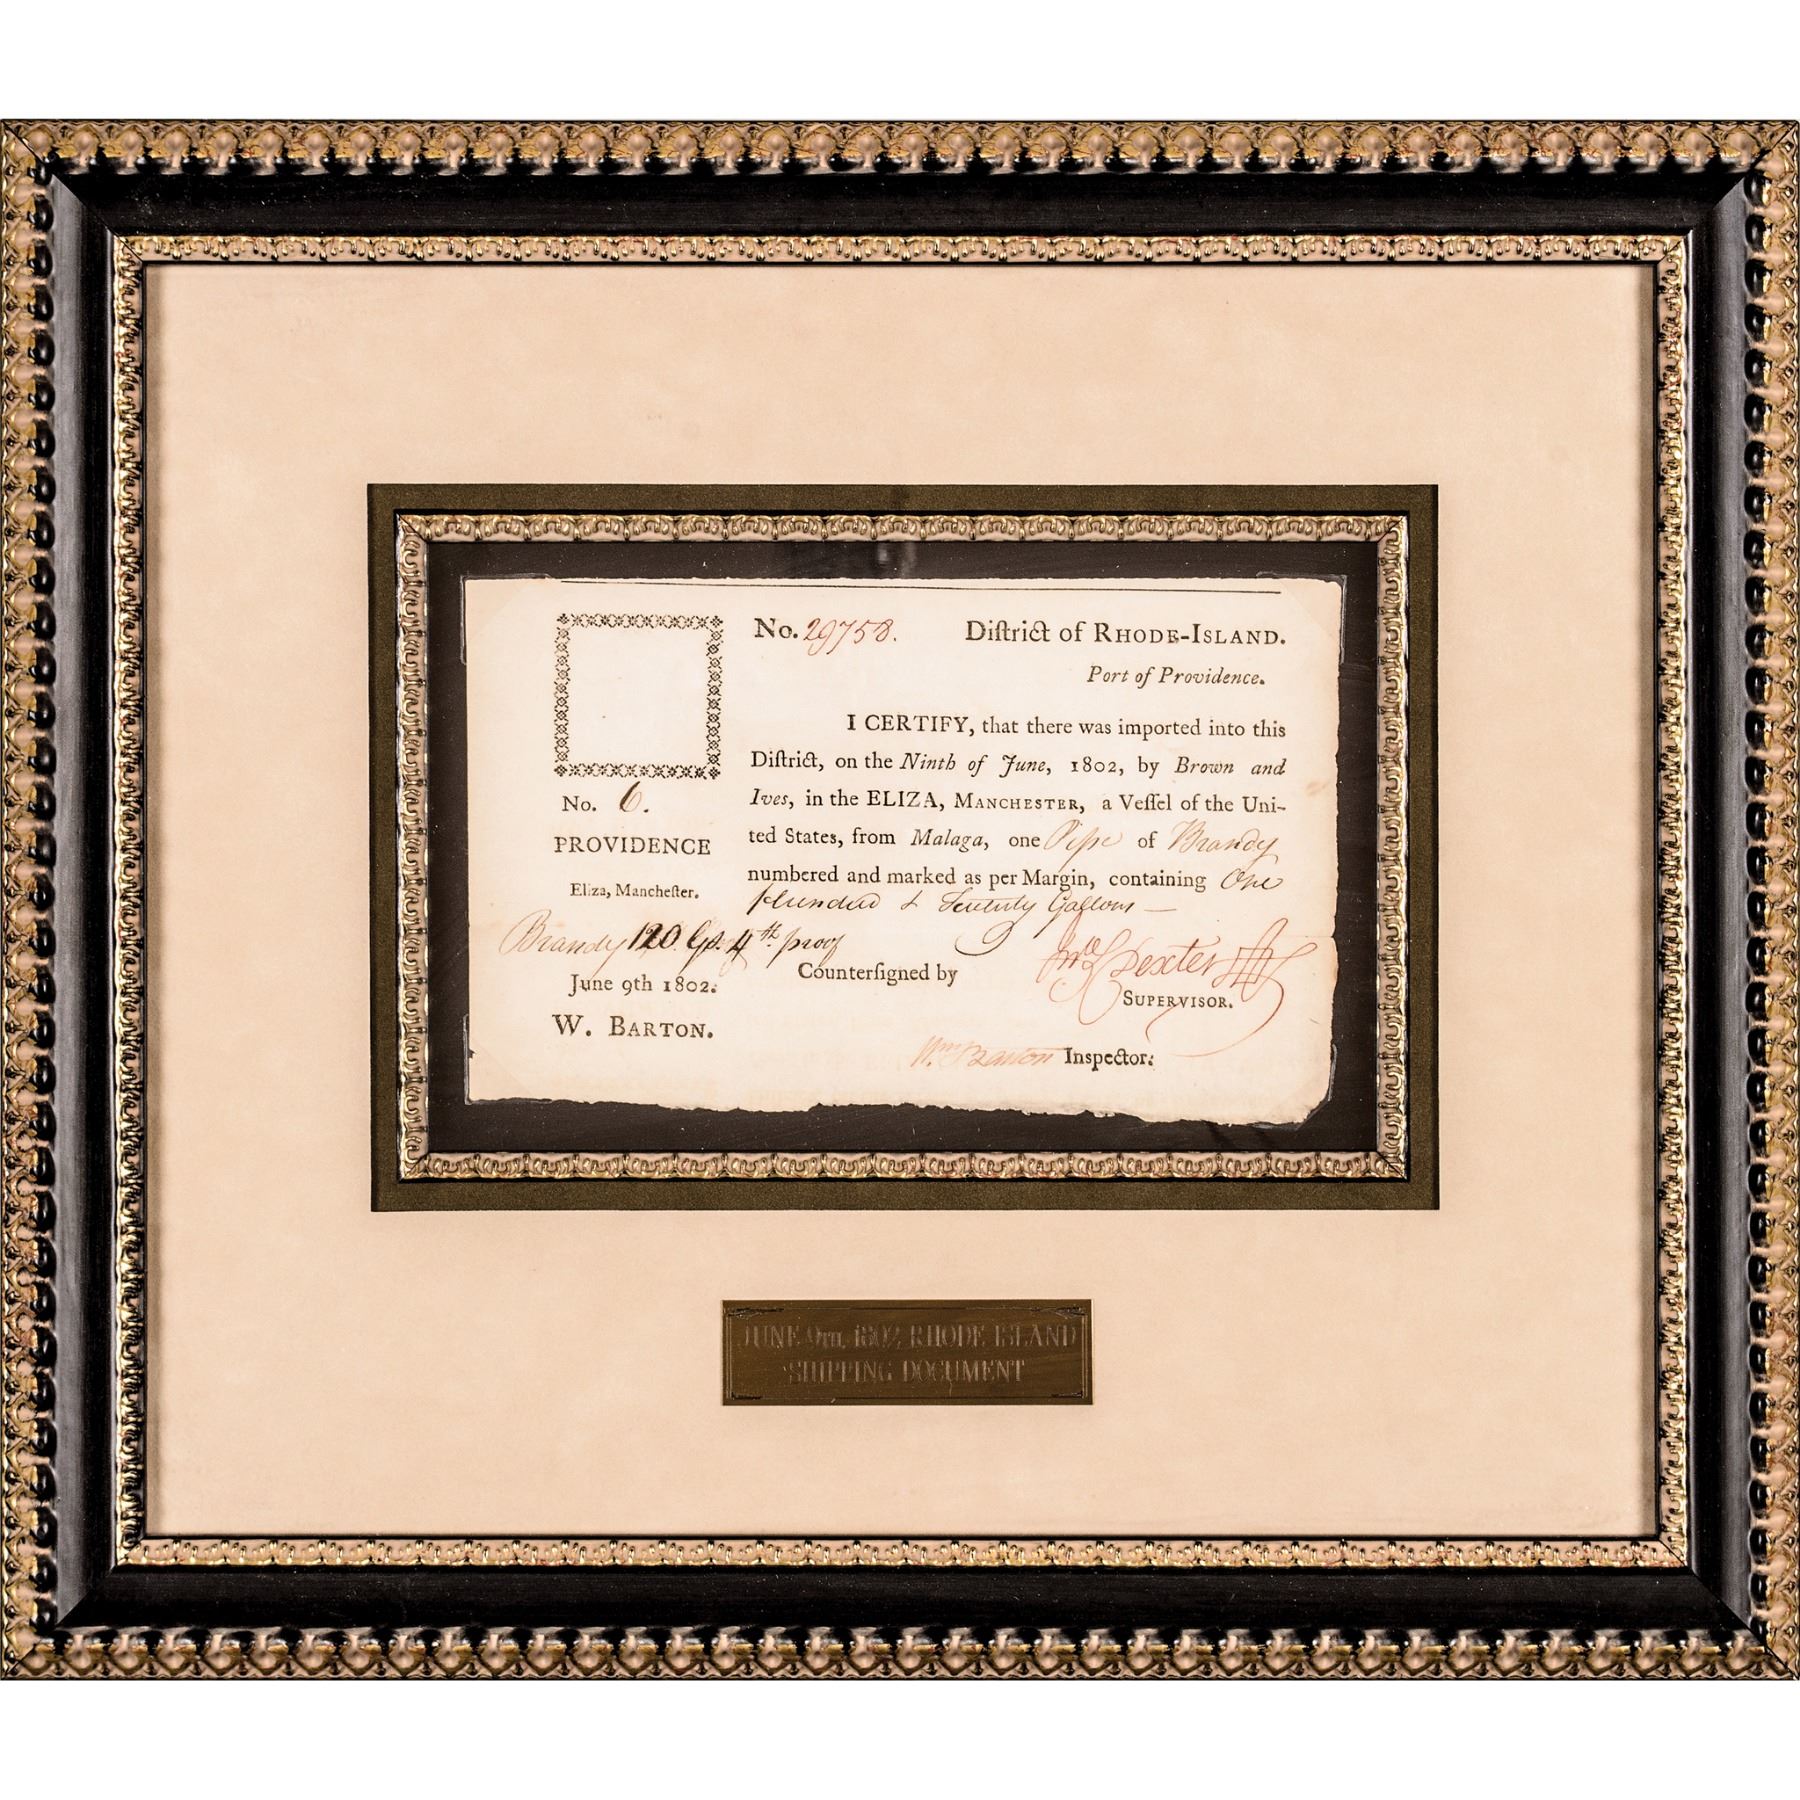 No. 29758. Diſtrict of RHODE-ISLAND.
Port of Providence.
I CERTIFY, that there was imported into this
Diſtrict, on the Ninth of June, 1802, by Brown and
Ives, in the ELIZA, MANCHESTER, a Veſſel of the Uni-
ted States, from Malaga, one Pipe of Brandy
numbered and marked as per Margin, containing One
Hundred & Twenty Gallons —
Dexter
SUPERVISOR.
Counterſigned by
Wm. Barton Inspector.
No. 6.
PROVIDENCE
Eliza, Mancheſter.
Brandy 120 Gs. 4th. proof
June 9th 1802.
W. BARTON.
JUNE 9TH, 1802, RHODE ISLAND
SHIPPING DOCUMENT